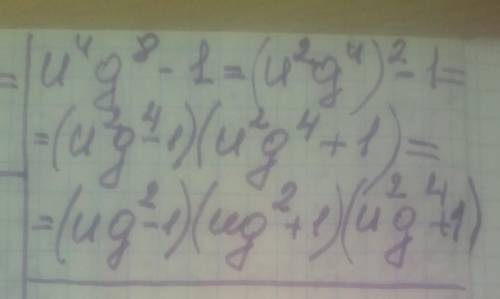 = u⁴g⁸ - 1 = (u²g⁴)² - 1 =
= (u²g⁴ - 1)(u²g⁴ + 1) =
= (ug² - 1)(ug² + 1)(u²g⁴ + 1)